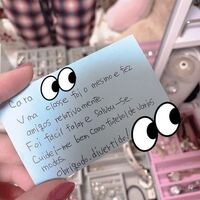 Cara
Uma classe foi o mesmo e fez
amigos relativamente.
Foi fácil falar e Salvou-se
Cuide-me bem como futebol de vários
modos.
Obrigado. divertido!